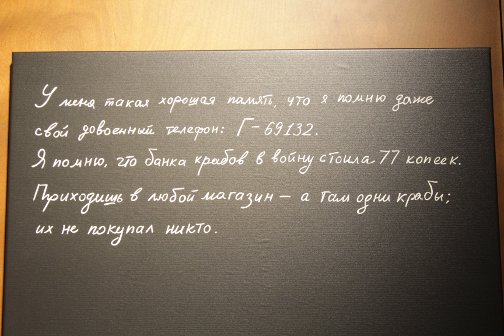 У меня такая хорошая память, что я помню даже
свой довоенный телефон: Г-69132.
Я помню, что банка крабов в войну стоила 77 копеек.
Приходишь в любой магазин — а там одни крабы;
их не покупал никто.